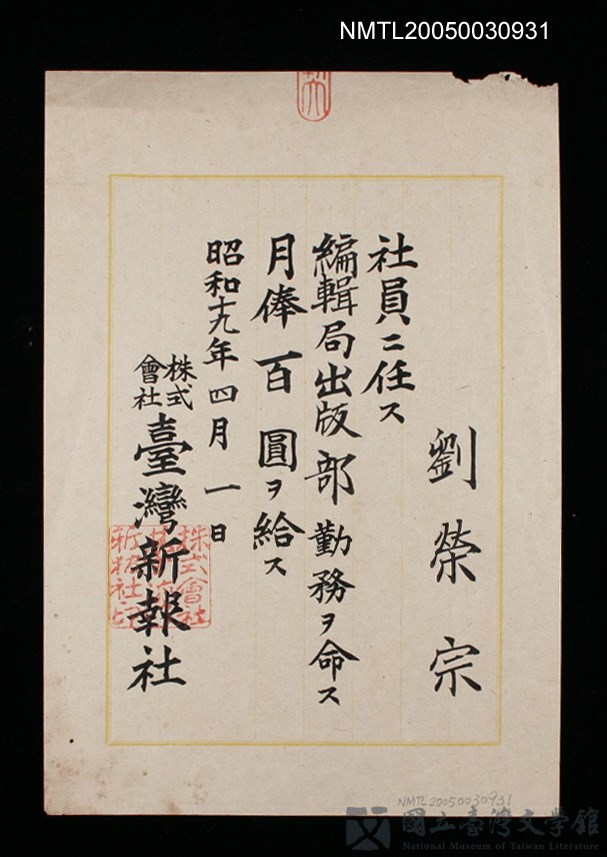 NMTL20050030931
劉榮宗
社員ニ任ス
編輯局出版部勤務ヲ命ス
月俸百圓ヲ給ス
昭和十九年四月一日
株式會社臺灣新報社
NMTL20050030931
國立臺灣文學館
National Museum of Taiwan Literature